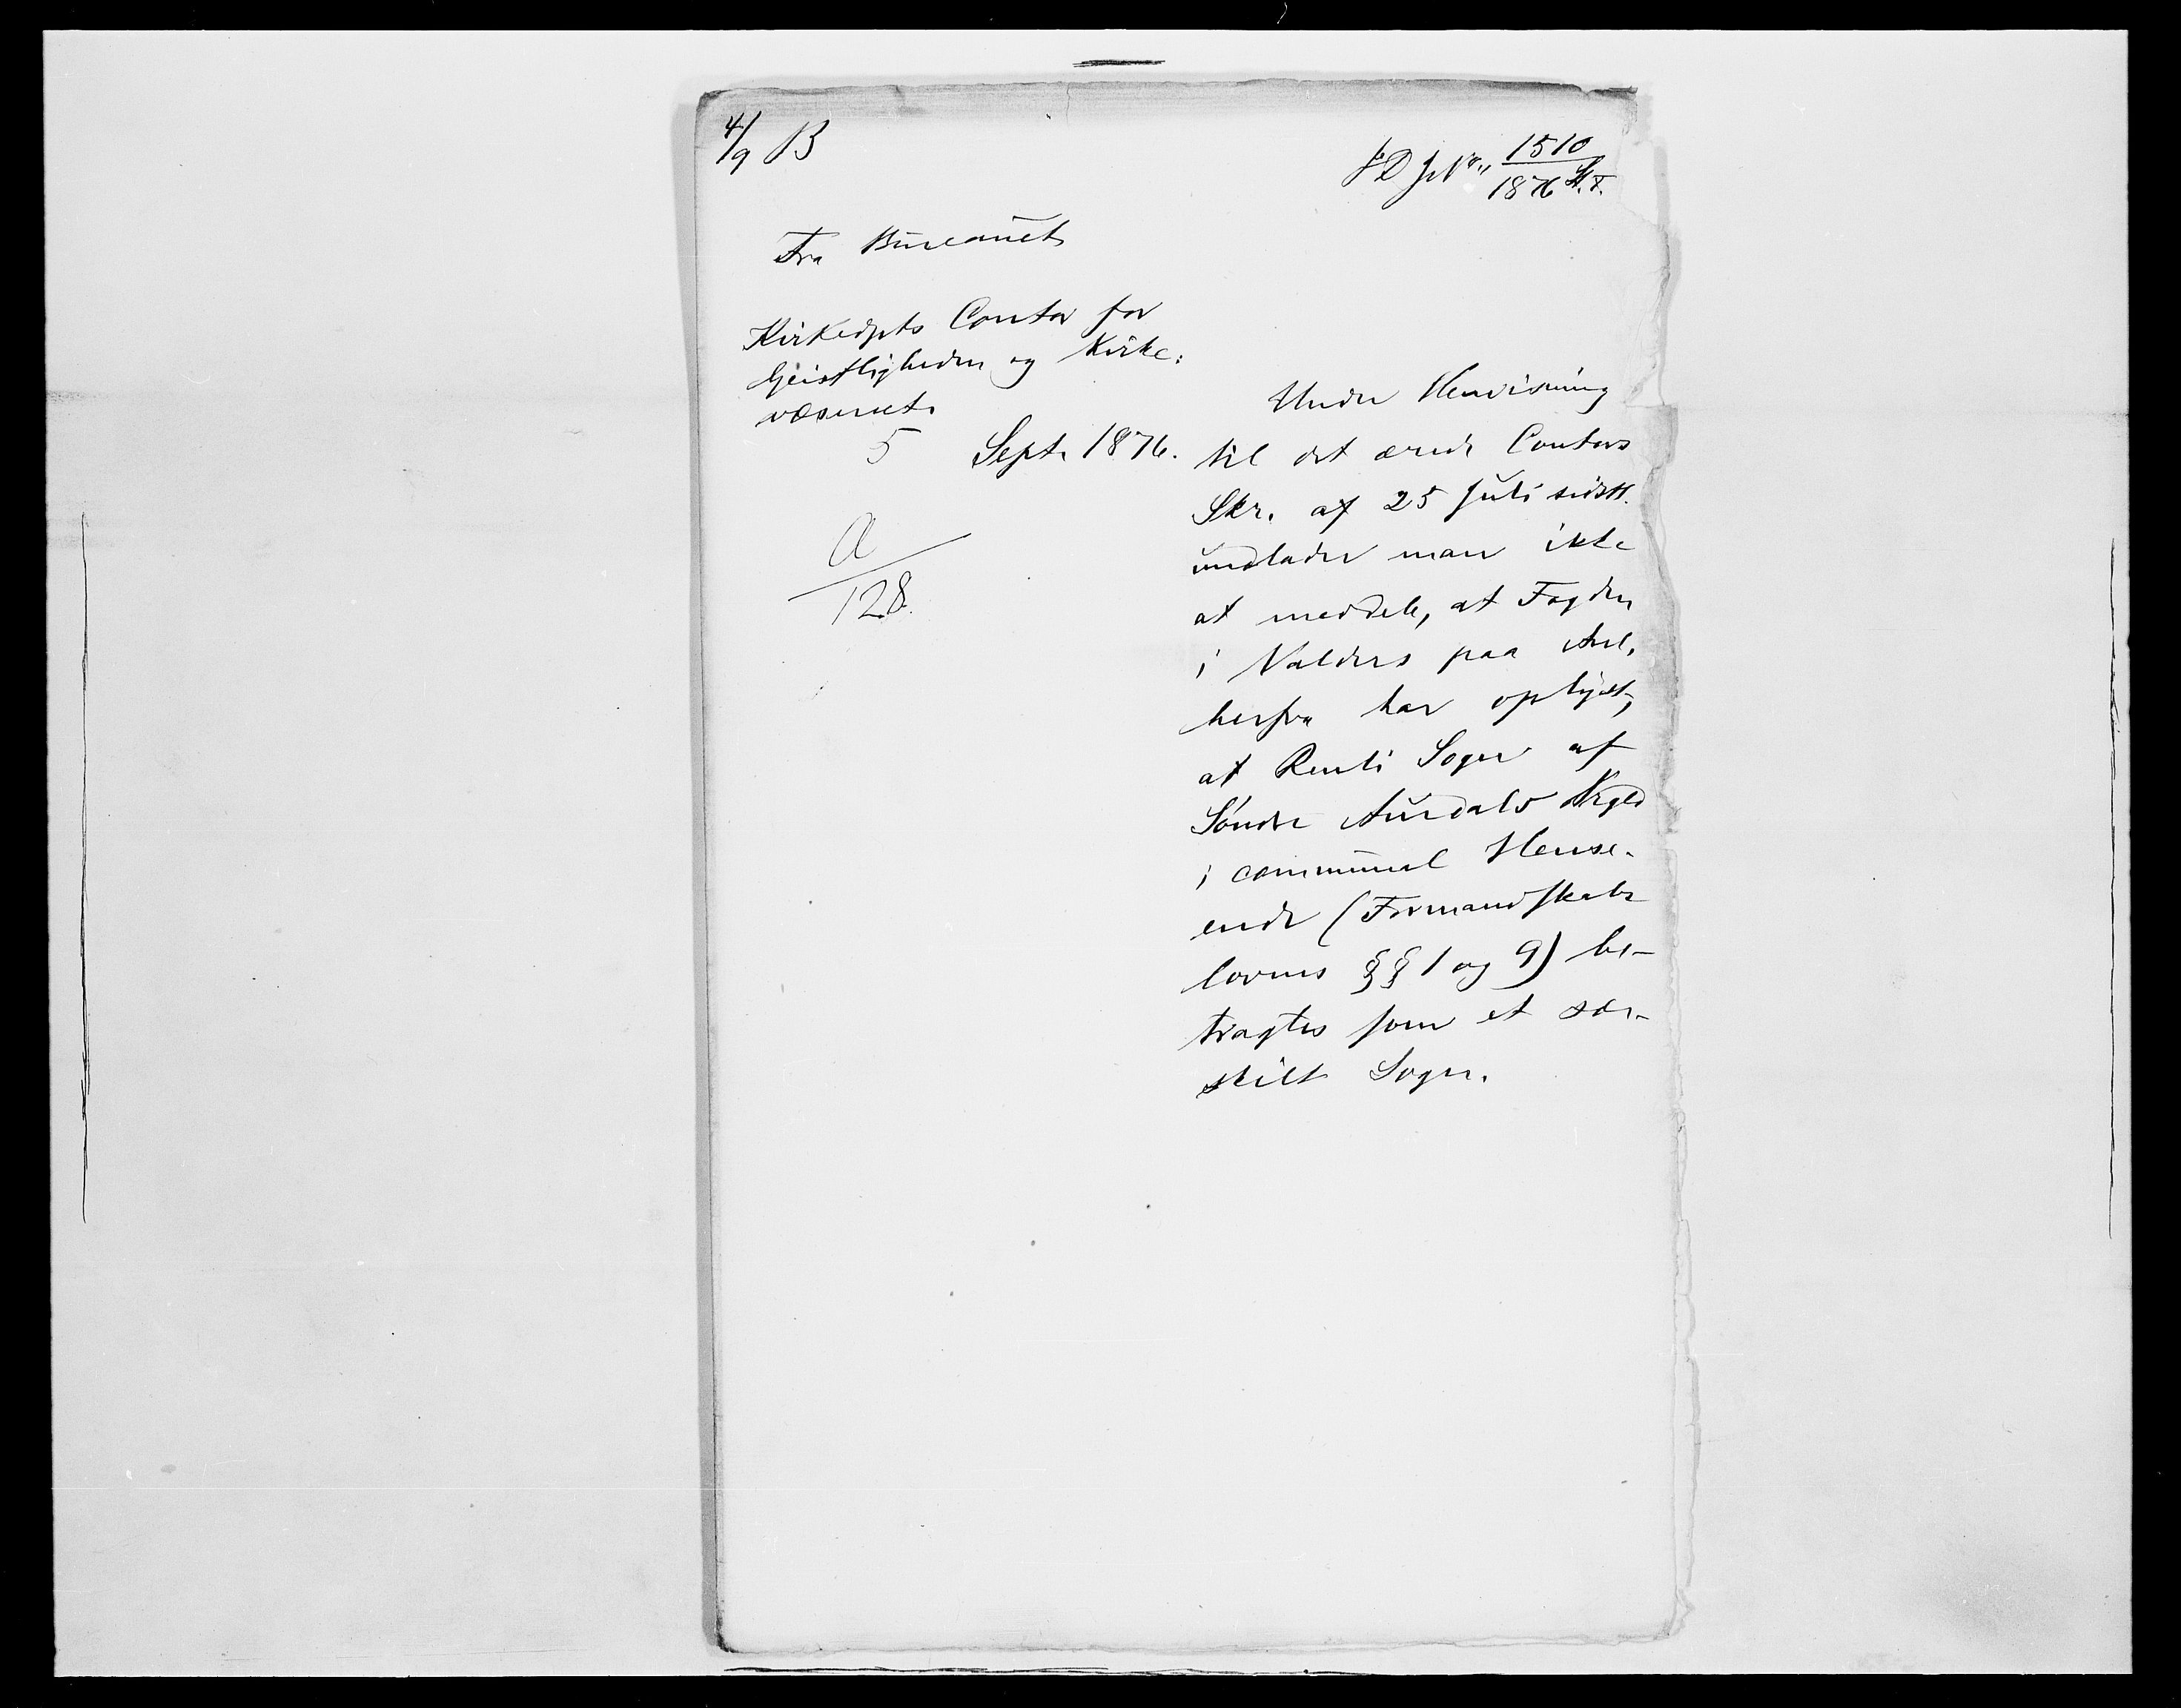 4/9 B
JD JNo. 1510
1876 A.T.
Fra Bureauet
Kirkedpts Contor for
Geistligheden og Kirke:
væsenet.
5 Sept. 1876.
A
128.
Under Henvisning
til det ærede Contors
Skr. af 25 Juli sidstl.
undlader man ikke
at meddele, at Fogden
i Valders paa Anl.
herfra har oplyst,
at Renli Sogn af
Søndre Aurdals Prgld
i communal Hense-
ende (Formandskabs
lovens §§ 1 og 9) be-
tragtes som et sær-
skilt Sogn.